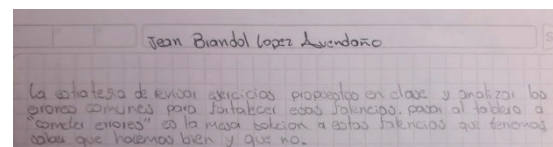 Jean Brandol Lopez Avendaño
La estrategia de revisar ejercicios propuestos en clase y analizar los
errores comunes para fortalecer esas falencias. pasar al tablero a
"cometer errores" es la mejor solucion a estas falencias que tenemos
saber que hacemos bien y que no.